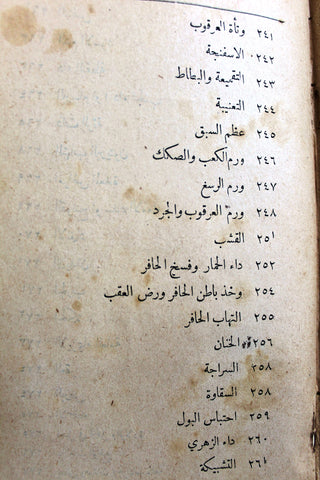 ٢٤١ وثأة العرقوب
٢٤٢ الاسفنجة
٢٤٣ التقميعة والبطاط
٢٤٤ التعنيبة
٢٤٥ عظم السبق
٢٤٦ ورم الكعب والصكك
٢٤٧ ورم الرسغ
٢٤٨ ورم العرقوب والجرد
٢٥١ القشب
٢٥٢ داء الحمار وفسخ الحافر
٢٥٤ وخذ باطن الحافر ورض العقب
٢٥٥ التهاب الحافر
٢٥٦ الخنان
٢٥٨ السراجة
٢٥٨ السقاوة
٢٥٩ احتباس البول
٢٦٠ داء الزهري
٢٦١ التشبيكة